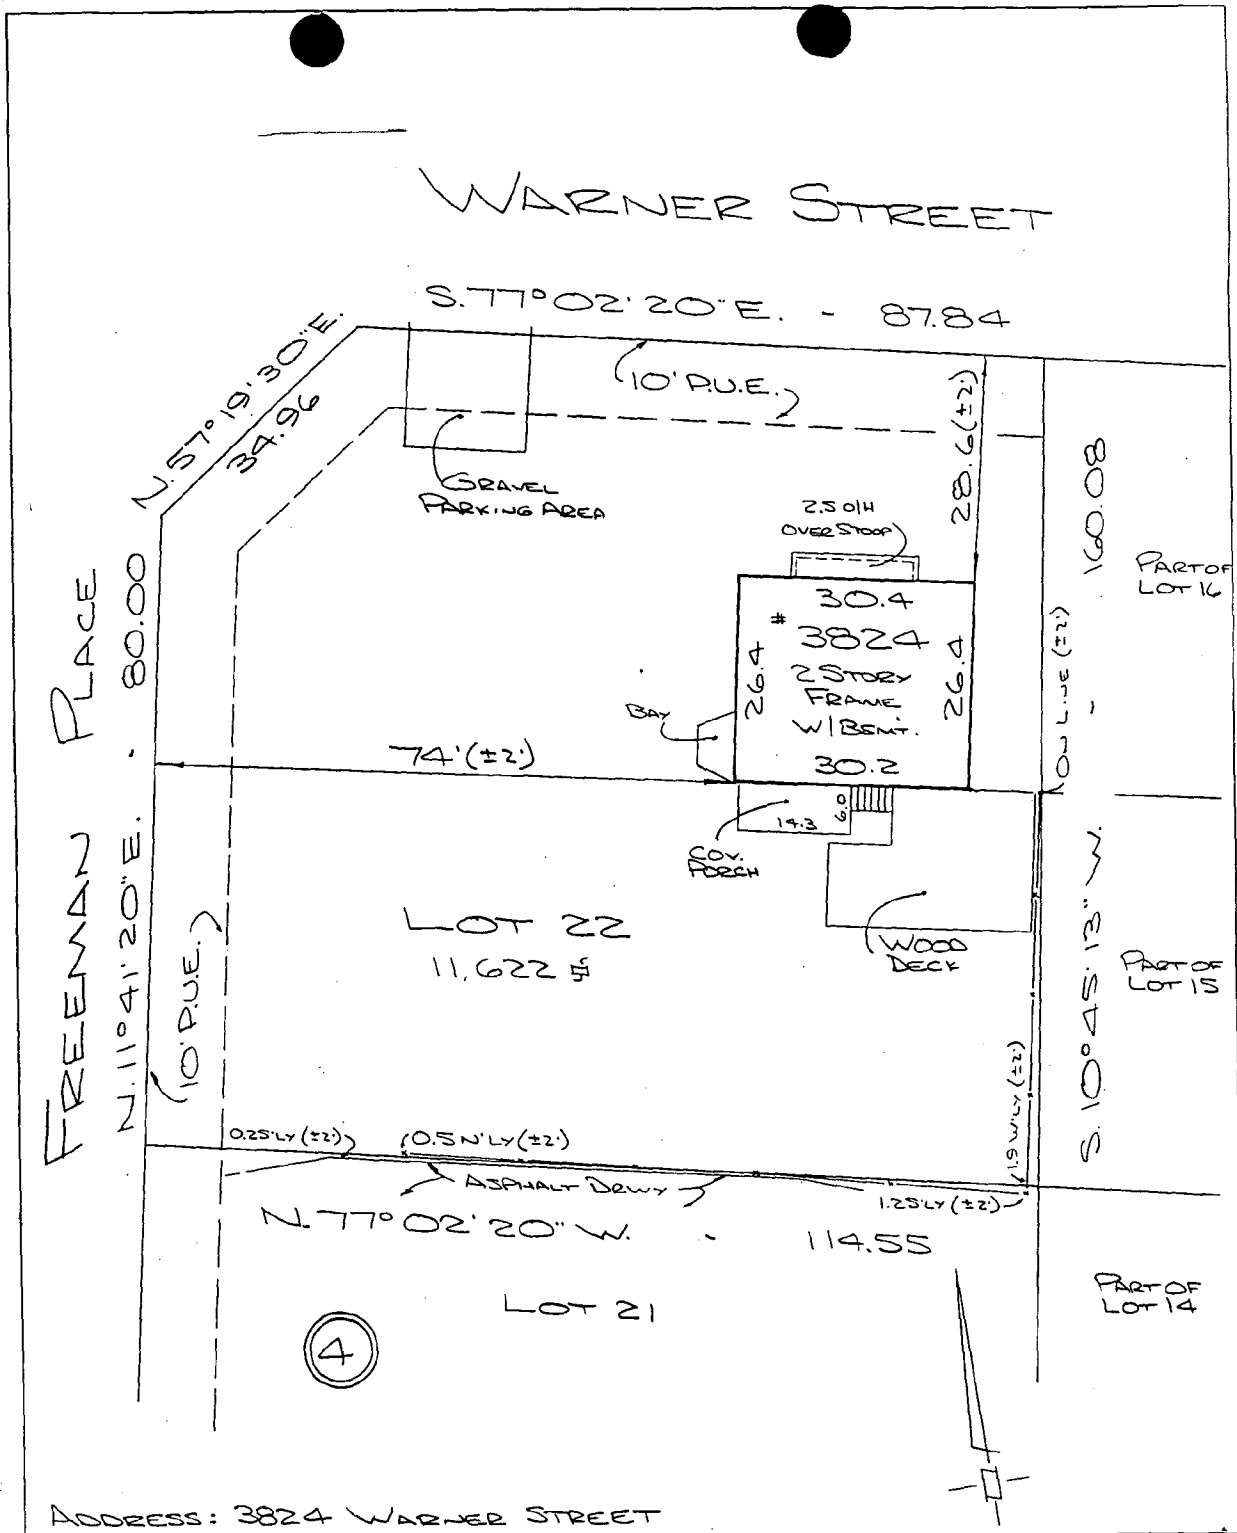 WARNER STREET
S. 77° 02' 20" E. - 87.84
N. 57° 19' 30" E.
34.96
10' P.U.E.
28.6 (±2')
160.08
GRAVEL
PARKING AREA
2.5 O/H
OVER STOOP
PART OF
LOT 16
30.4
# 3824
2 STORY
FRAME
W/BSMT.
30.2
26.4
26.4
ON LINE (±2')
BAY
74' (±2')
FREEMAN PLACE
N. 11° 41' 20" E. - 80.00
14.3
6.0
COV.
PORCH
LOT 22
11,622
WOOD
DECK
PART OF
LOT 15
S. 10° 45' 13" W.
10' P.U.E.
1.9 W'LY (±2')
0.2 S'LY (±2')
0.5 N'LY (±2')
ASPHALT DRWY
1.2 S'LY (±2')
N. 77° 02' 20" W. - 114.55
LOT 21
PART OF
LOT 14
4
ADDRESS: 3824 WARNER STREET